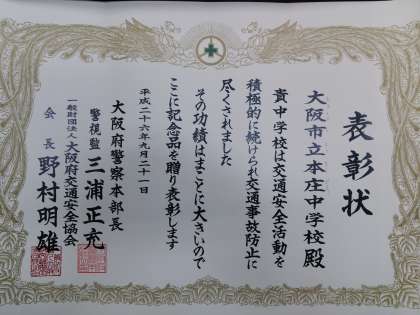 表彰状
大阪市立本庄中学校殿
貴中学校は交通安全活動を
積極的に続けられ交通事故防止に
尽くされました
その功績はまことに大きいので
ここに記念品を贈り表彰します
平成二十六年九月二十一日
大阪府警察本部長
警視監 三浦正充
一般財団法人大阪府交通安全協会
会長 野村明雄